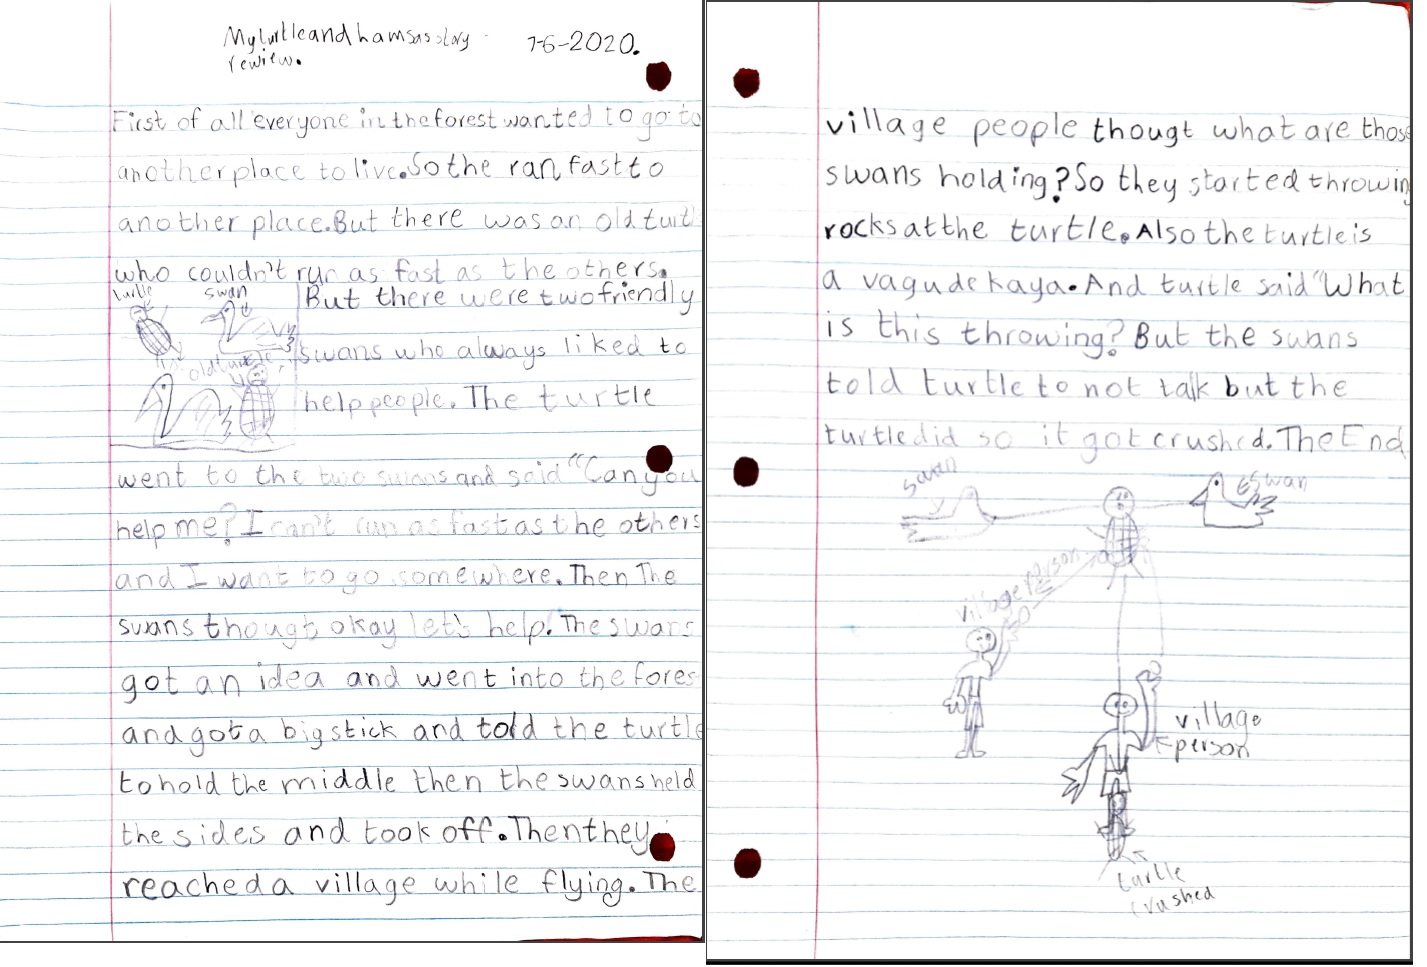 My turtle and hamsas story 7-6-2020.
rewiew.
First of all everyone in the forest wanted to go to
another place to live. So the ran fast to
another place. But there was an old turtl
who couldn't run as fast as the others.
turtle swan
But there were two friendly
swans who always liked to
old turtle
help people. The turtle
went to the two swans and said "Can you
help me? I can't run as fast as the others
and I want to go somewhere. Then The
swans thougt okay let's help. The swans
got an idea and went into the fores
and got a big stick and told the turtle
to hold the middle then the swans held
the sides and took off. Then they
reached a village while flying. The
village people thougt what are those
swans holding? So they started throwing
rocks at the turtle. Also the turtle is
a vagudekaya. And turtle said "What
is this throwing? But the swans
told turtle to not talk but the
turtle did so it got crushed. The End
swan
swan
village person
village
person
turtle
crushed